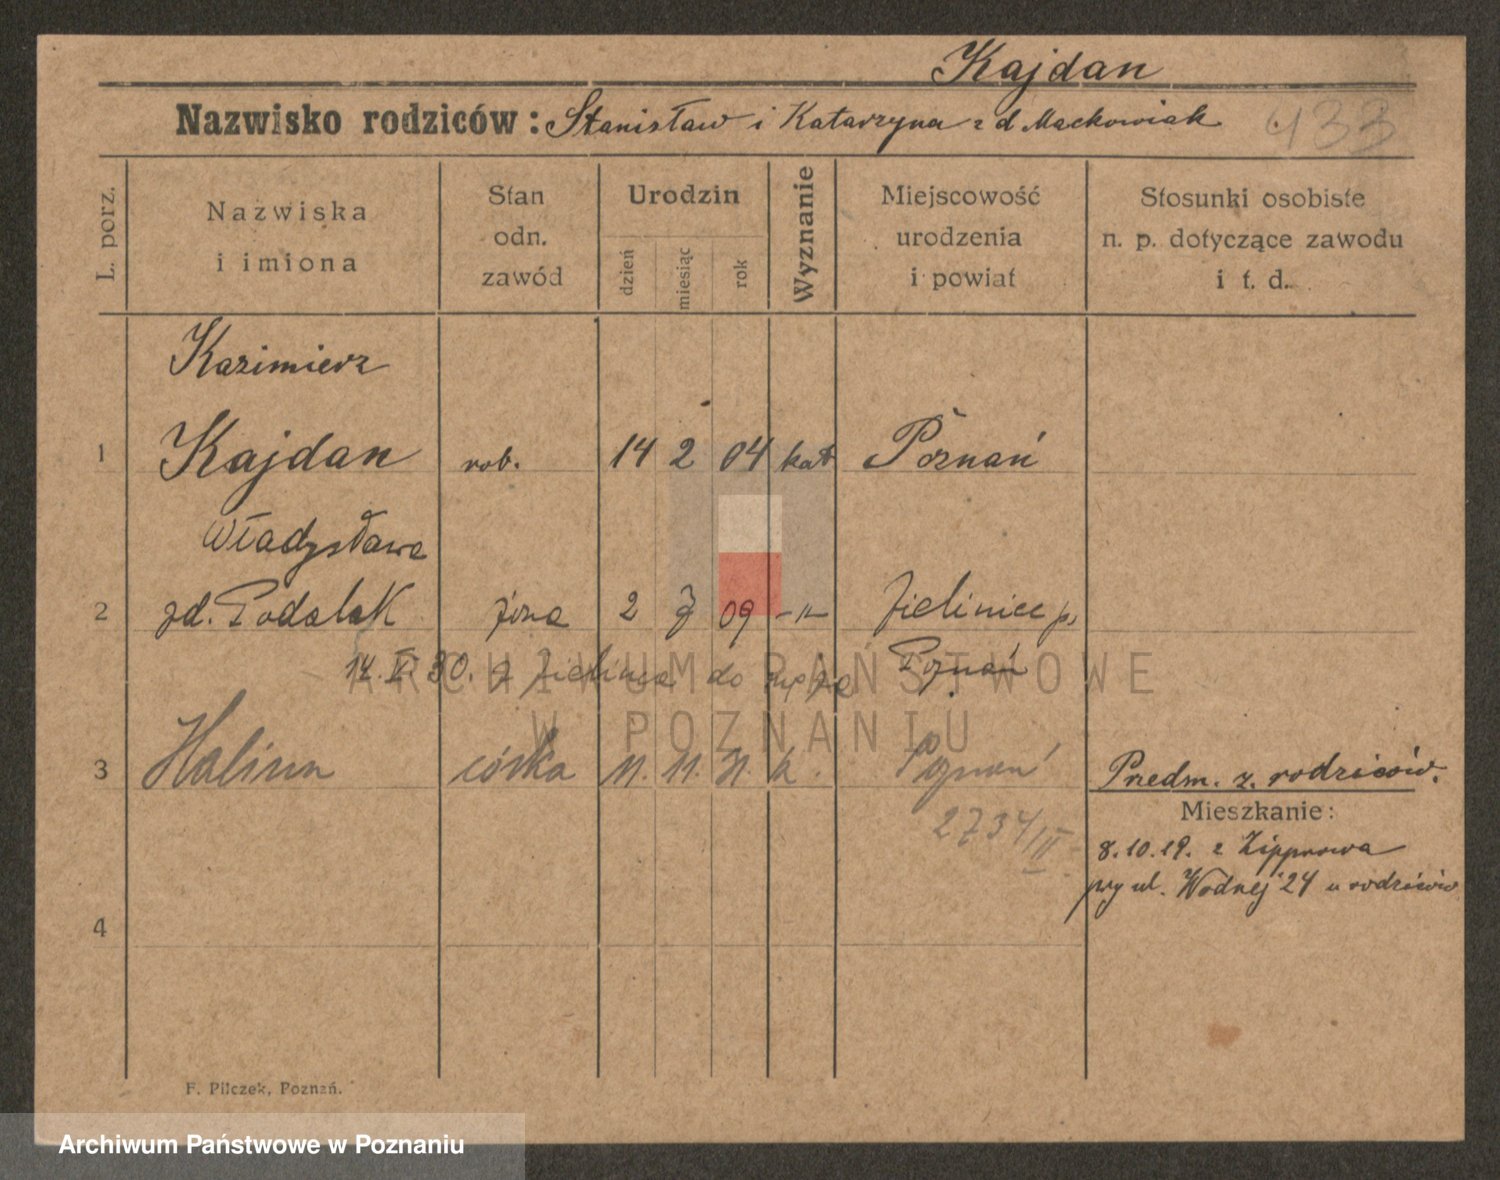 Kajdan
Nazwisko rodziców: Stanisław i Katarzyna z d Maćkowiak
433
L. porz.
Nazwiska
i imiona
Stan
odn.
zawód
Urodzin
dzień
miesiąc
rok
Wyznanie
Miejscowość
urodzenia
i powiat
Stosunki osobiste
n. p. dotyczące zawodu
i t. d.
Kazimierz
1 Kajdan rob. 14 2 04 kat Poznań
Władysława
2 zd. Podolak żona 2 09 -"- Zieliniec p.
14. X. 30. z Zielińca do męża Poznań
3 Halina córka 11. 11. 31. k. Poznań
2734/II
Przedm. z. rodziców.
Mieszkanie:
8.10.19. z
przy ul. Wodnej 24 u rodziców
4
F. Pilczek, Poznań.
ARCHIWUM PAŃSTWOWE
W POZNANIU
Archiwum Państwowe w Poznaniu